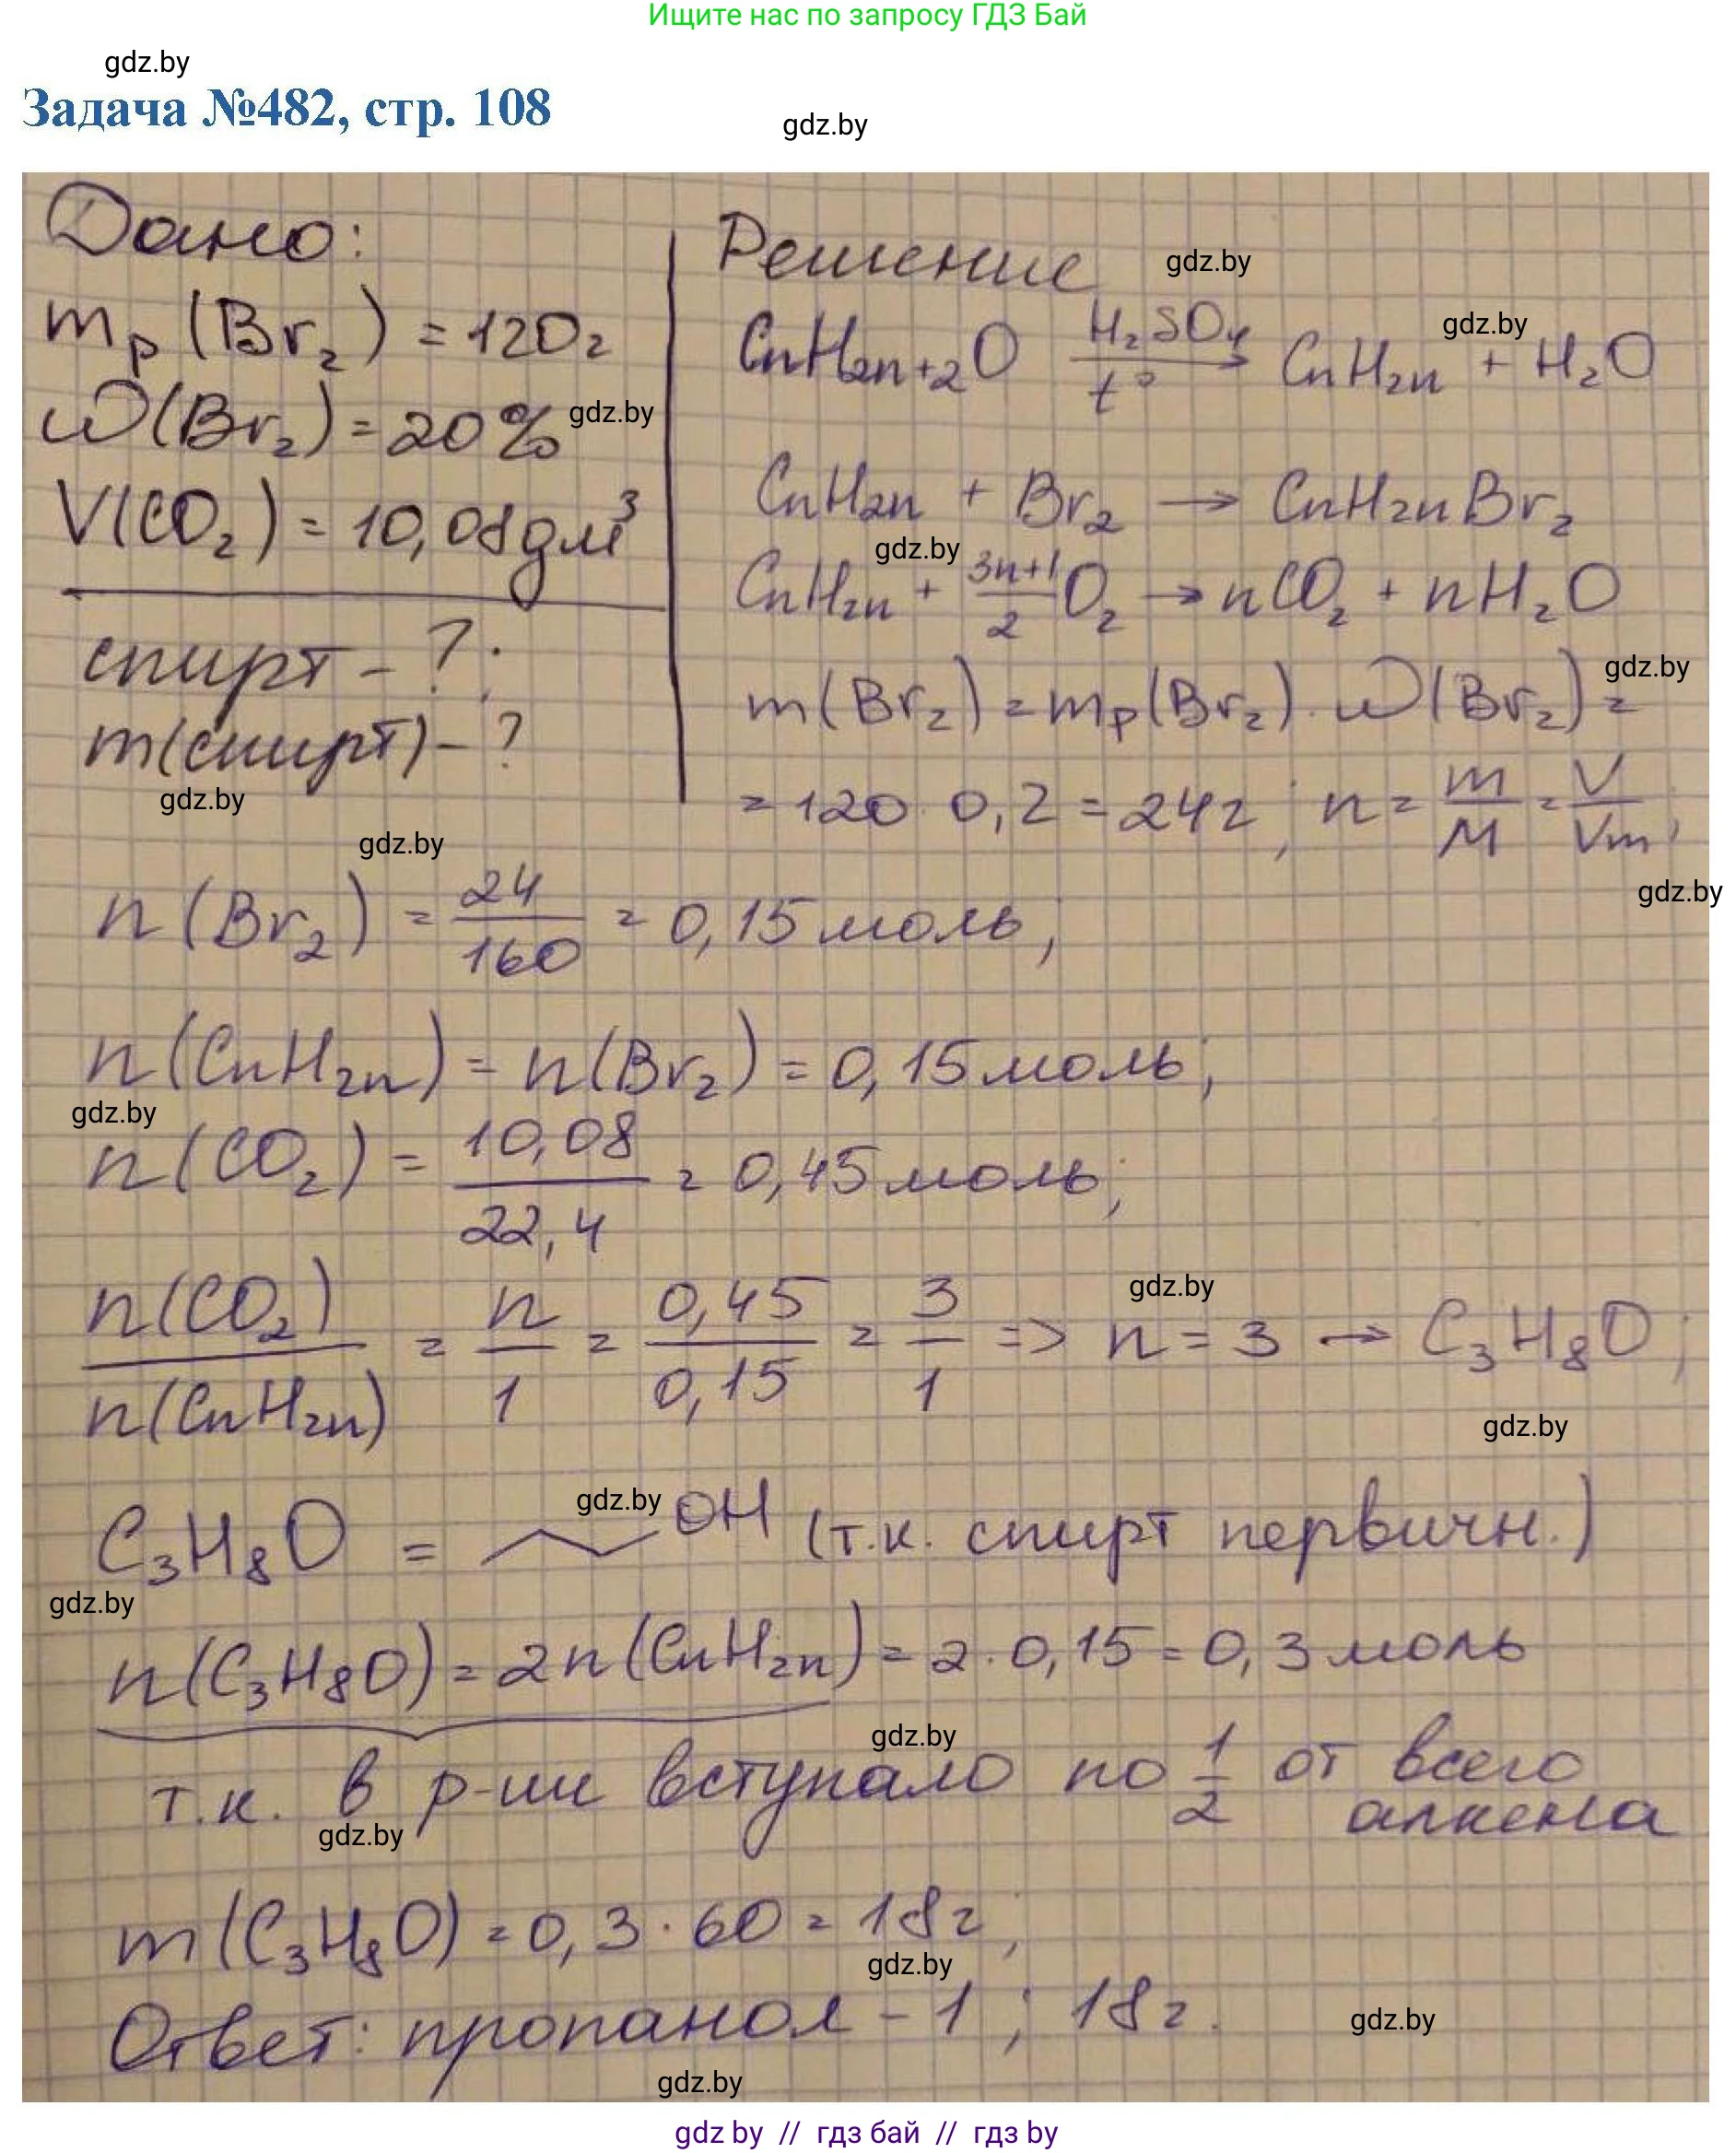 Ищите нас по запросу ГДЗ Бай
gdz.by
Задача №482, стр. 108
gdz.by
Дано:
mр(Br₂) = 120г
ω(Br₂) = 20% gdz.by
V(CO₂) = 10,08 дм³
спирт - ?;
m(спирт) - ?
gdz.by
Решение gdz.by
CnH2n+2O H₂SO₄ t° → CnH2n + H₂O
gdz.by
CnH2n + Br₂ → CnH2nBr₂
gdz.by
CnH2n + (3n+1)/2 O₂ → nCO₂ + nH₂O
gdz.by
m(Br₂) = mр(Br₂) · ω(Br₂) =
= 120 · 0,2 = 24г; n = m/M = V/Vm;
gdz.by
gdz.by
n(Br₂) = 24/160 = 0,15 моль;
n(CnH2n) = n(Br₂) = 0,15 моль;
gdz.by
n(CO₂) = 10,08/22,4 = 0,45 моль;
gdz.by
n(CO₂)/n(CnH2n) = n/1 = 0,45/0,15 = 3/1 => n = 3 → C₃H₈O;
gdz.by
gdz.by
C₃H₈O = OH (т.к. спирт первичн.)
gdz.by
n(C₃H₈O) = 2n(CnH2n) = 2 · 0,15 = 0,3 моль
gdz.by
т.к. в р-ии вступало по 1/2 от всего
алкена
gdz.by
m(C₃H₈O) = 0,3 · 60 = 18г;
gdz.by
Ответ: пропанол - 1; 18г.
gdz.by
gdz.by
gdz by // гдз бай // гдз by